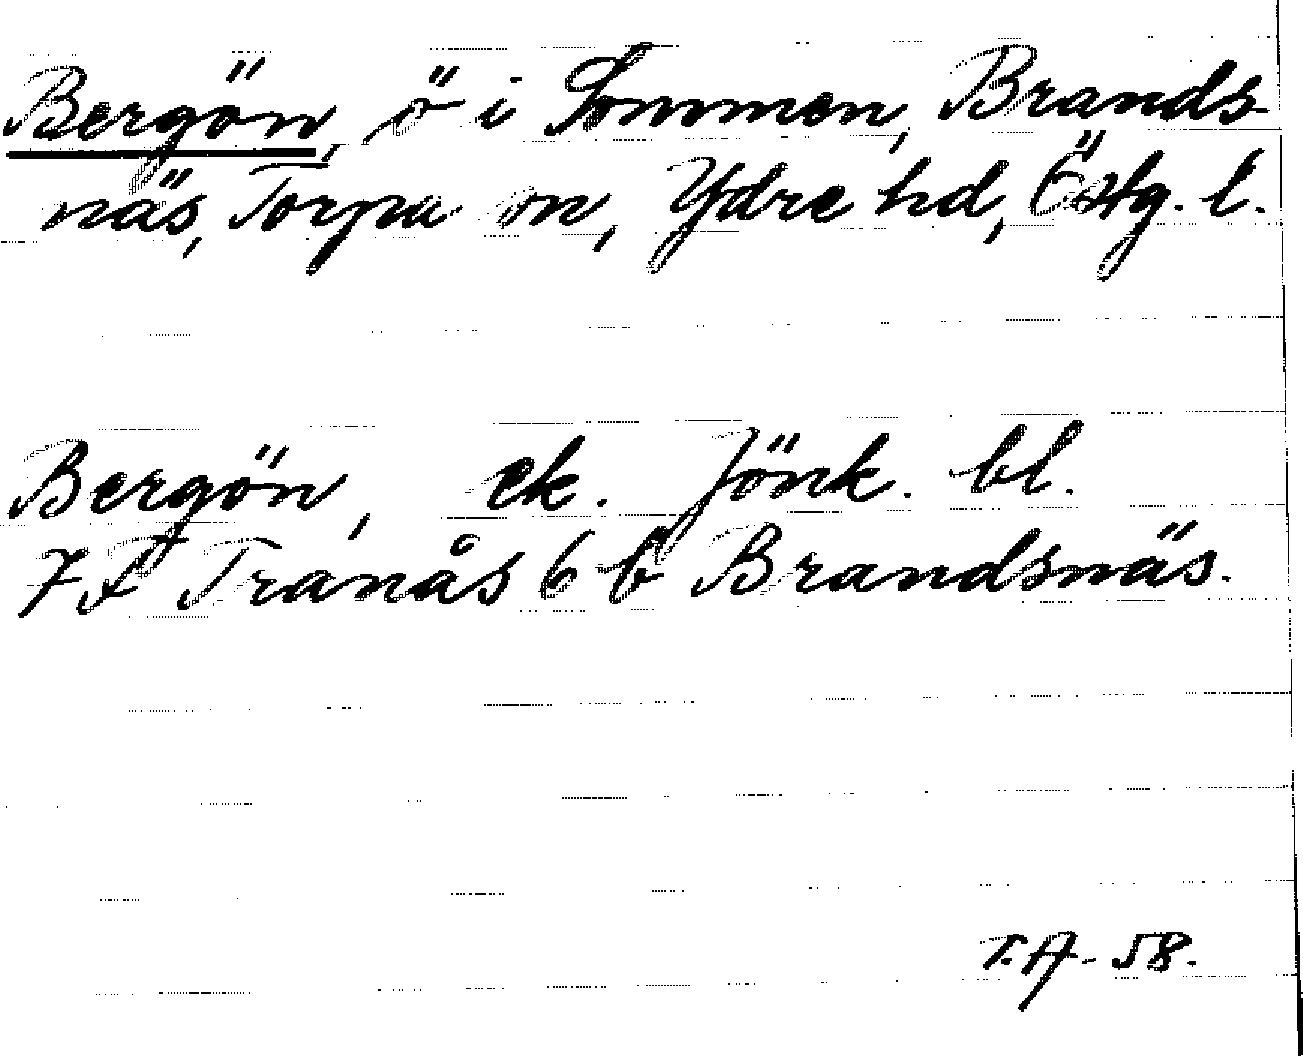 Bergön, ö i Sommen, Brands-
näs, Torpa sn, Ydre hd, Östg. l.
Bergön, ek. Jönk. bl.
7F Tranås 6 b Brandsnäs.
T.A-58.